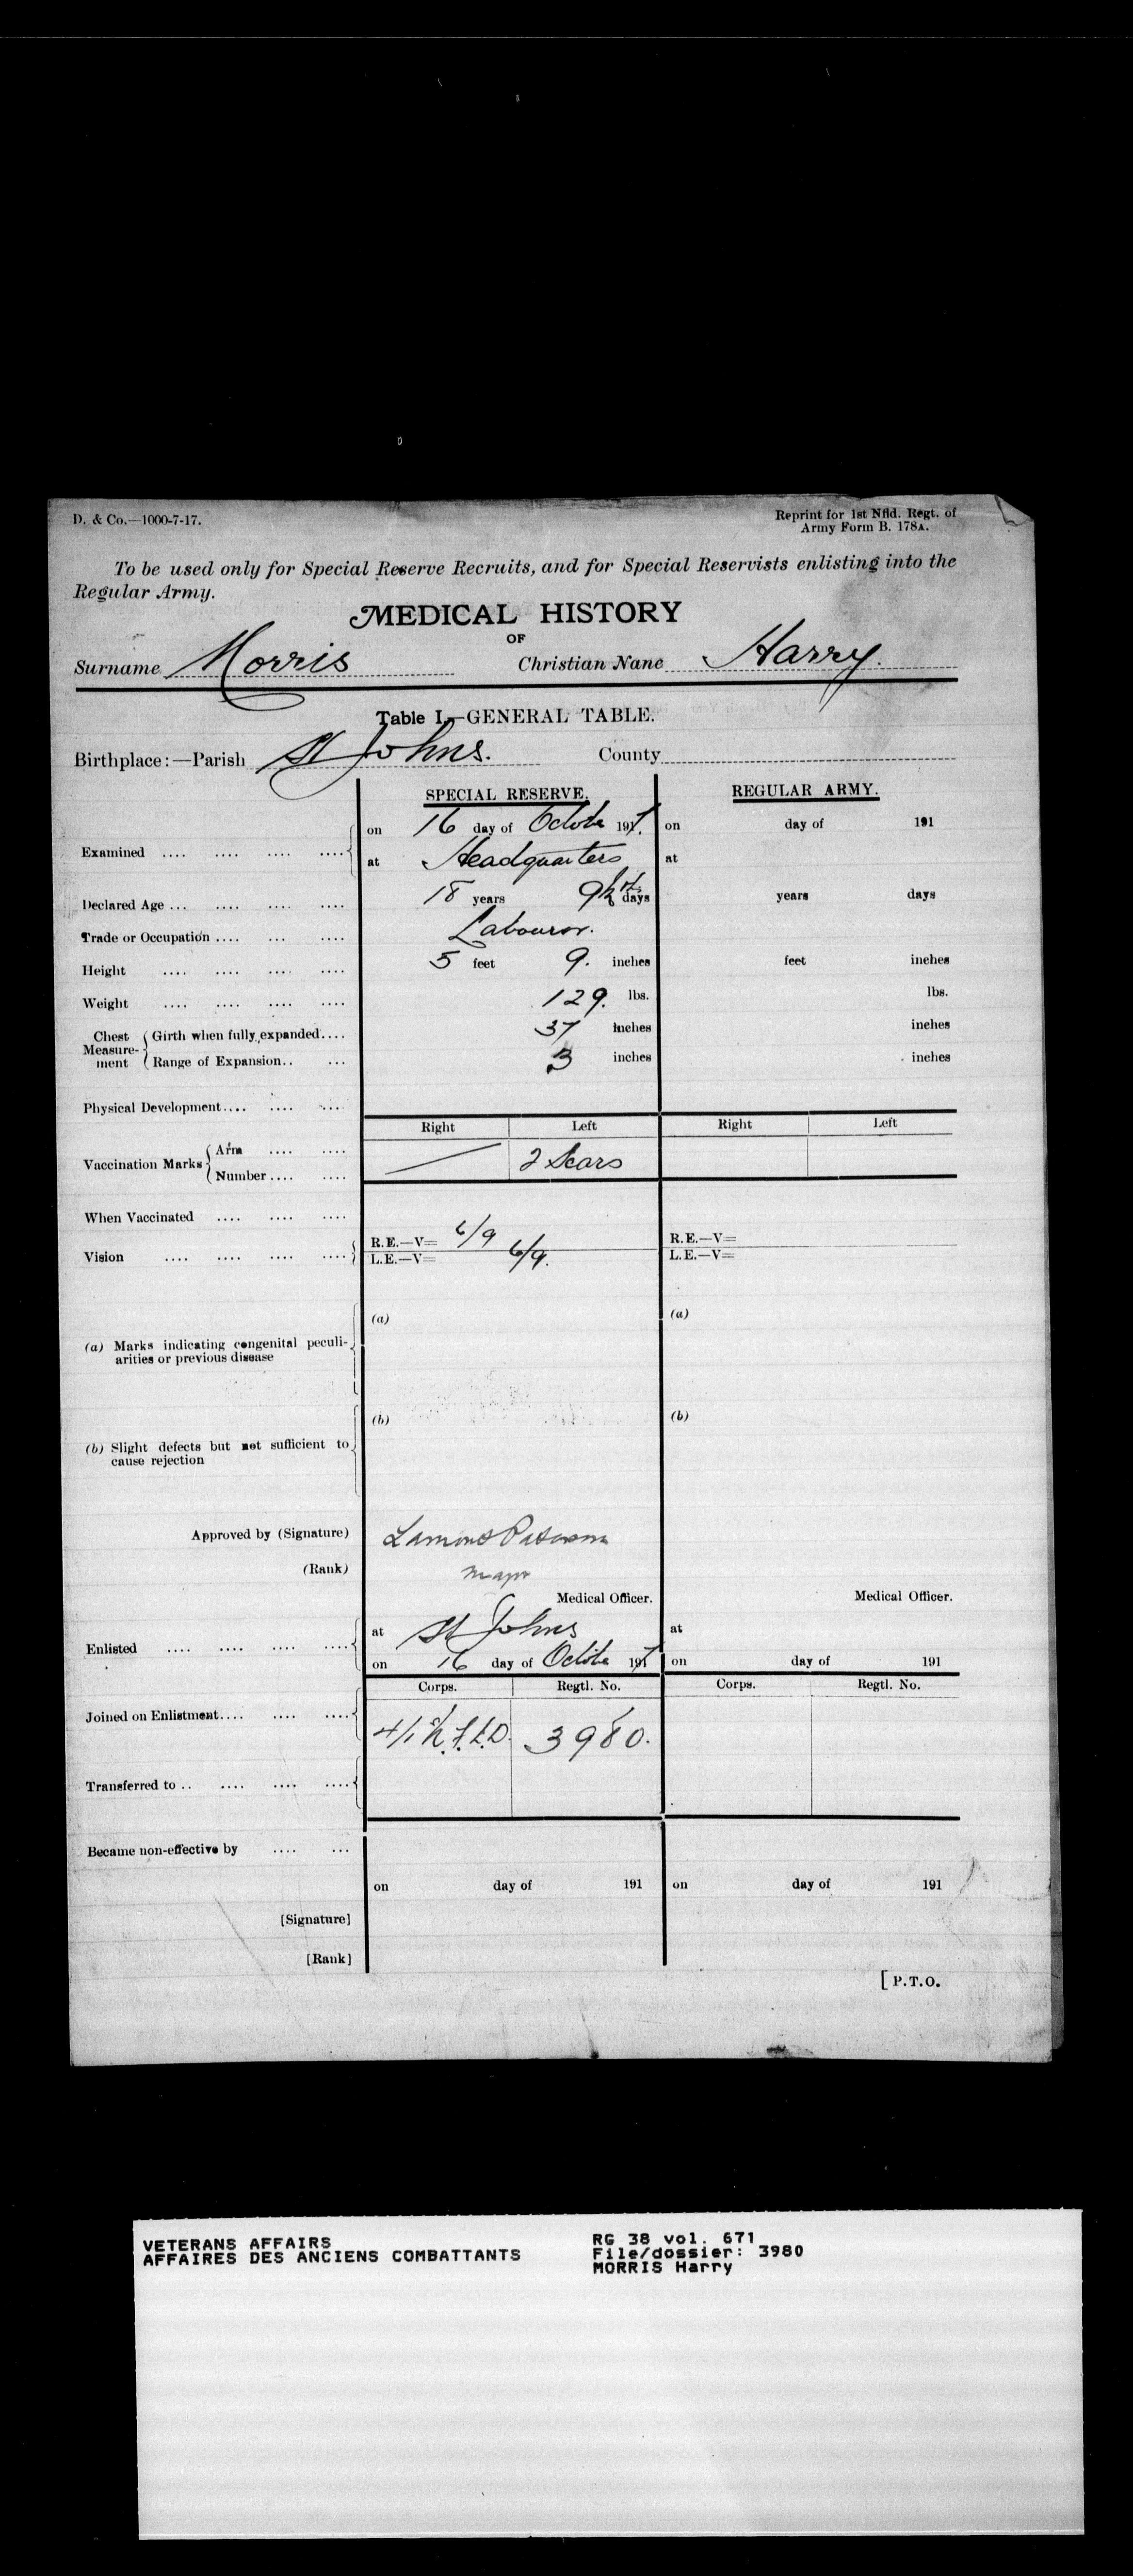 D. & Co.—1000-7-17.
Reprint for 1st Nfld. Regt. of
Army Form B. 178A.
To be used only for Special Reserve Recruits, and for Special Reservists enlisting into the
Regular Army.
MEDICAL HISTORY
OF
Surname Morris Christian Nane Harry.
Table I.—GENERAL TABLE.
Birthplace:—Parish St Johns. County
SPECIAL RESERVE. REGULAR ARMY.
Examined .... .... .... .... on 16 day of Octobe 1917. on day of 191
at Headquarters at
Declared Age ... .... .... .... 18 years 9 days years days
Trade or Occupation .... ... .... Labourer.
Height .... .... .... .... 5 feet 9. inches feet inches
Weight .... .... .... .... 129. lbs. lbs.
Chest Measure-ment Girth when fully expanded.... 37 inches inches
Range of Expansion.. ... 3 inches inches
Physical Development.... .... ....
Right Left Right Left
Vaccination Marks Arm .... .... 2 Scars
Number .... ....
When Vaccinated .... .... ....
Vision .... .... .... .... R.E.—V= 6/9 R.E.—V=
L.E.—V= 6/9. L.E.—V=
(a) Marks indicating congenital peculi-
arities or previous disease
(a) (a)
(b) Slight defects but not sufficient to
cause rejection
(b) (b)
Approved by (Signature) Lamont Paterson
(Rank) Major
Medical Officer. Medical Officer.
Enlisted .... .... .... .... at St Johns at
on 16 day of Octobe 1917 on day of 191
Corps. Regtl. No. Corps. Regtl. No.
Joined on Enlistment.... .... .... 3980.
Transferred to .. .... .... ....
Became non-effective by .... ...
on day of 191 on day of 191
[Signature]
[Rank]
[ P.T.O.
VETERANS AFFAIRS
AFFAIRES DES ANCIENS COMBATTANTS
RG 38 vol. 671
File/dossier: 3980
MORRIS Harry